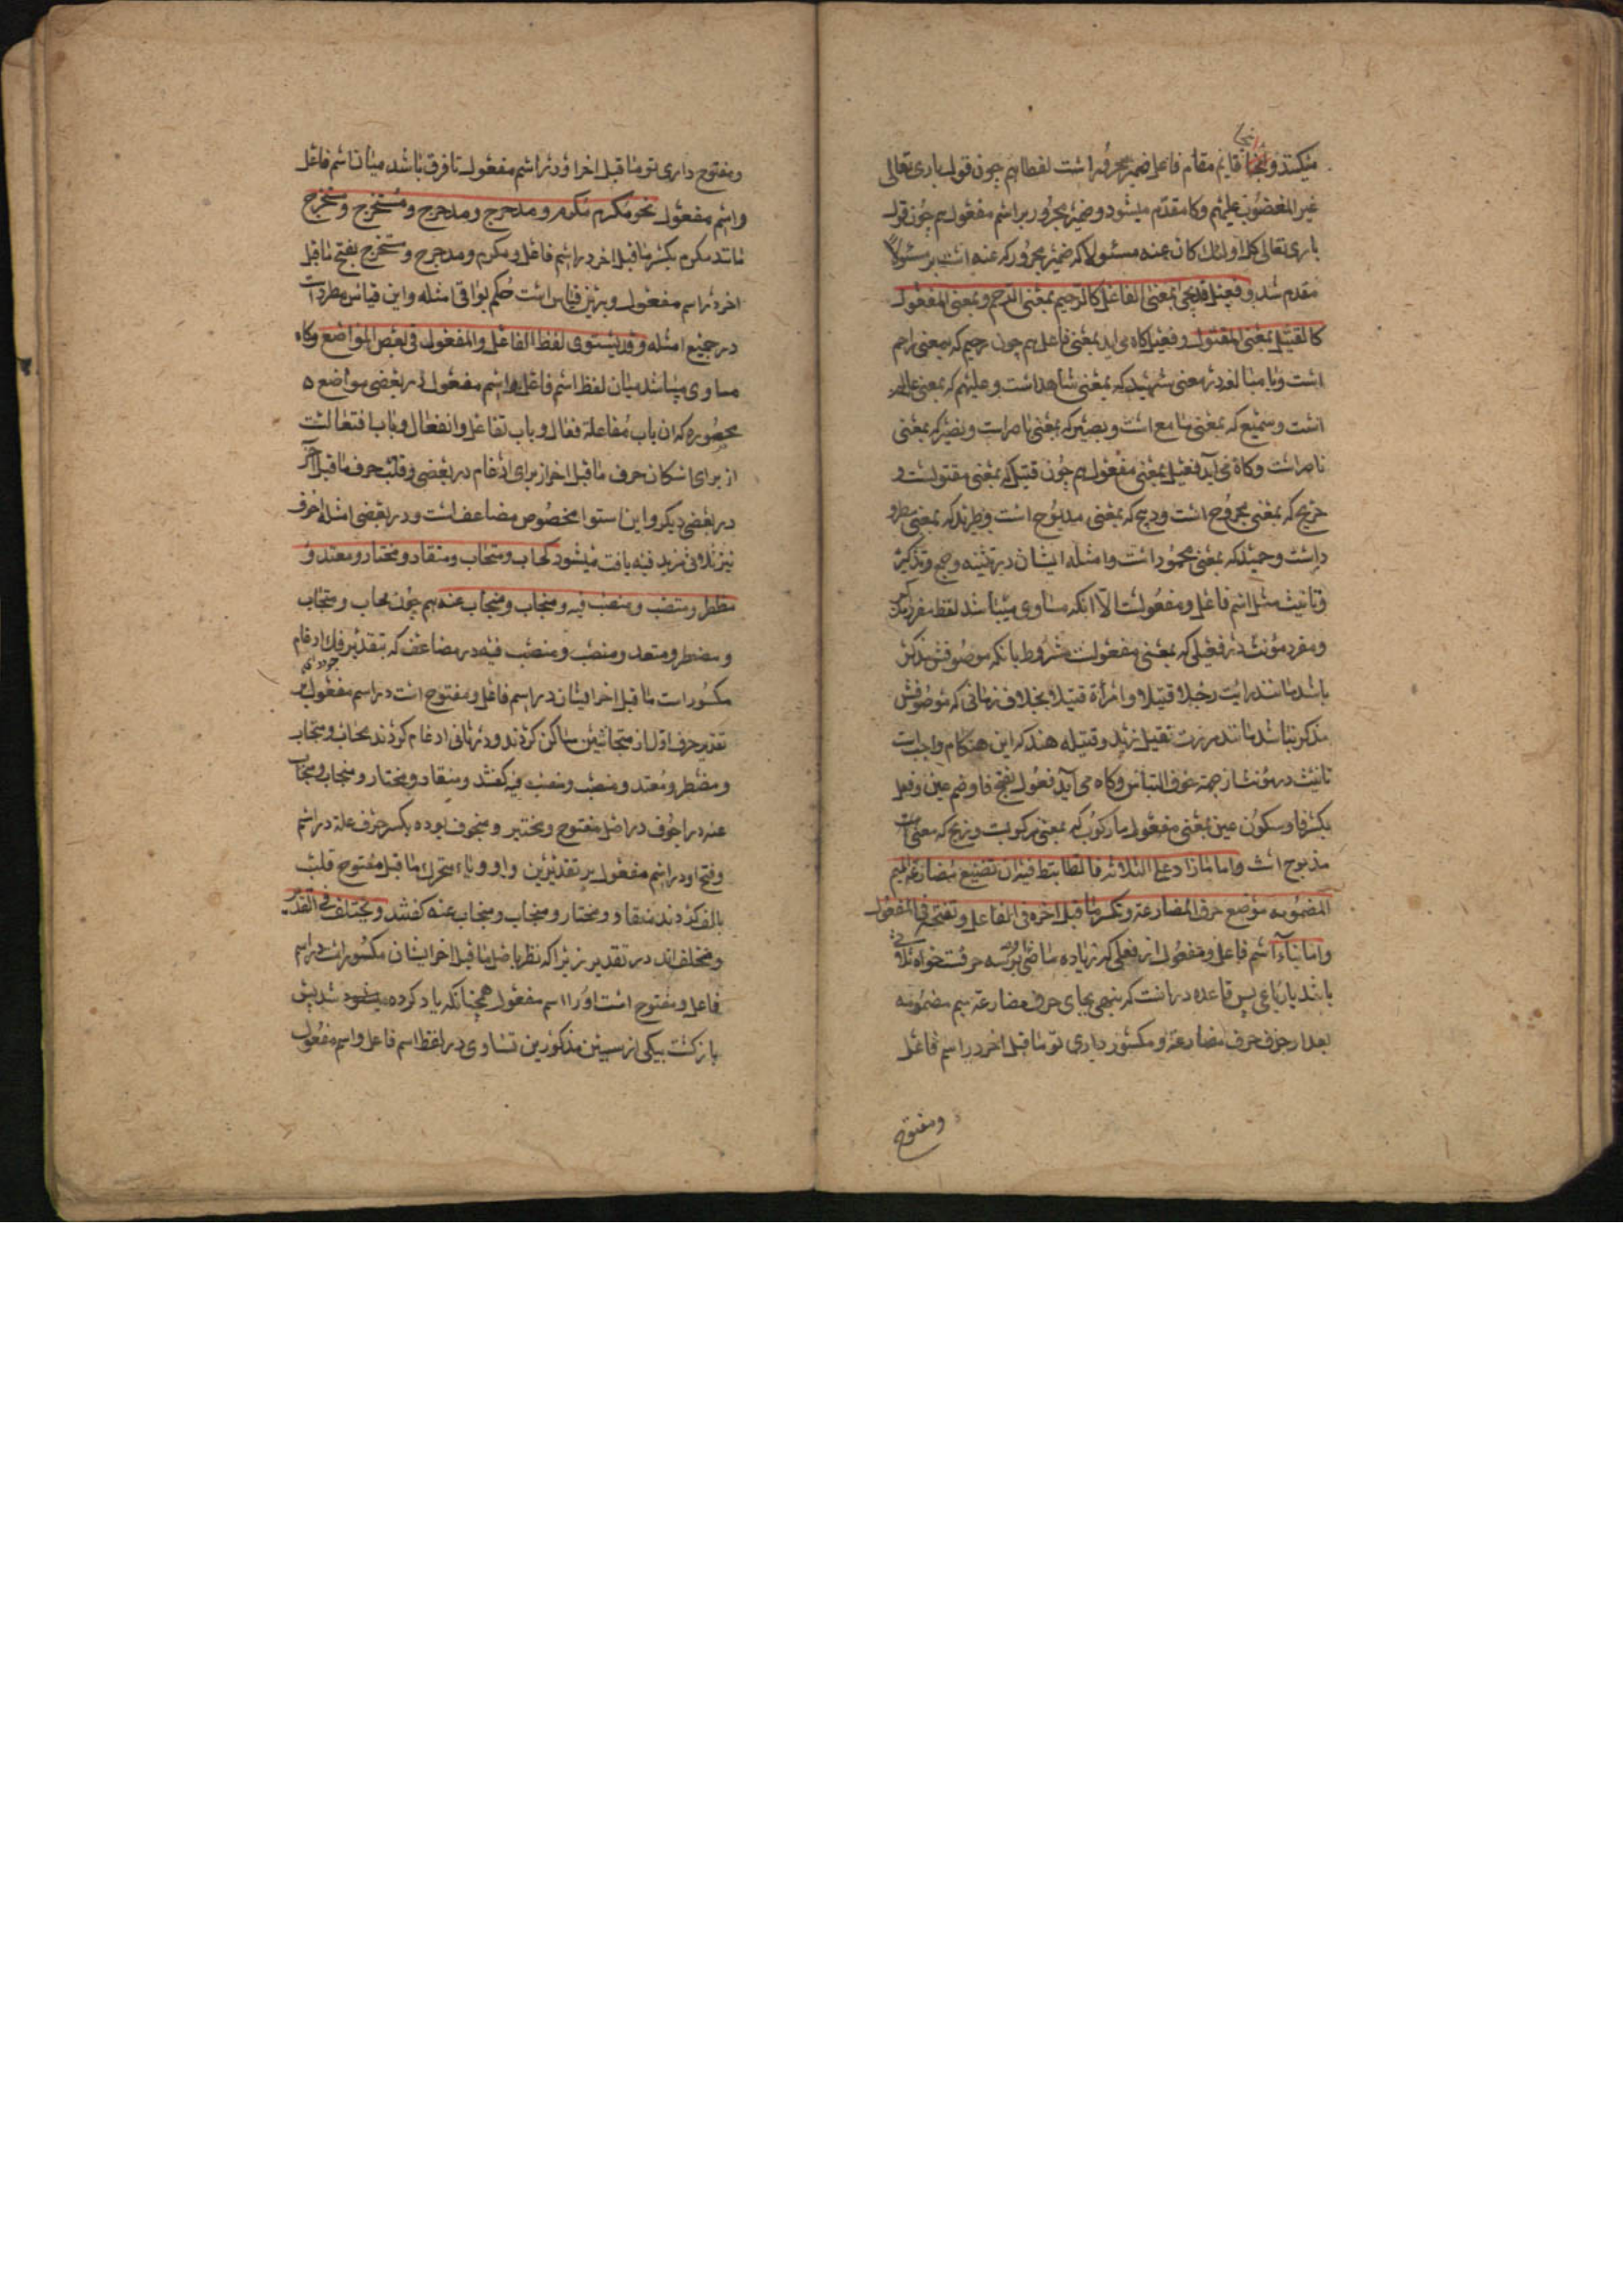 میکند و بجا قایم مقام فاعل ضمیر مجرور است لفظا هم چون قول باری تعالی
غیر المغضوب علیهم و کا مقدم میشود ضمیر مجرور بر اسم مفعول هم چون قول
باری تعالی کل اولئک کان عنه مسئولا که ضمیر مجرور که عنه است بر مسئولا
مقدم شد و فعیل قد یجی بمعنی الفاعل کالرحیم بمعنی الراحم و بمعنی المفعول
کالقتیل بمعنی المقتول و فعیل کاه می اید بمعنی فاعل هم چون رحیم که بمعنی راحم
است و با مبالغه در معنی شهید که بمعنی شاهد است و علیم که بمعنی عالم
است و سمیع که بمعنی سامع است و بصیر که بمعنی باصر است و نصیر که بمعنی
ناصر است و کاه می آید فعیل بمعنی مفعول هم چون قتیل که بمعنی مقتولست و
جریح که بمعنی مجروح است و ذبیح که بمعنی مذبوح است و طرید که بمعنی مطرو
د است و حمید که بمعنی محمود است و امثله ایشان در تثنیه و جمع و تذکیر
و تانیث مثل اسم فاعل و مفعولست الا انکه مساوی میباشد لفظ مفرد مذکر
و مفرد مؤنث در فعیلی که بمعنی مفعولست مشروط بانکه موصوفش مذکور
باشد مانند رایت رجلا قتیلا و امرأة قتیلا بخلاف زمانی که موصوفش
مذکور نباشد مانند مررت بقتیل زید و قتیله هند که این هنکام واجب است
تانیث در مؤنث از جهة خوف التباس و کاه می آید فعول بفتح فا و ضم عین و فعل
بکسر فا و سکون عین بمعنی مفعول مار کوب که بمعنی مرکوبست و ذبح که بمعنی
مذبوح است و اما ما زاد علی الثلاثه فالضابط فیه ان تضع فی مضارعه المیم
المضمومه موضع حرف المضارعة و تکسر ما قبل اخره فی الفاعل و تفتحه فی المفعول
و اما بناء اسم فاعل و مفعول از فعلی که زیاده ماضی بر سه حرفست خواه ثلاثی
باشد یا رباعی پس قاعده در انست که بنهی بجای حرف مضارعة میم مضمومه
بعد از حذف حرف مضارعة و مکسور داری تو ما قبل اخر در اسم فاعل
و مفتوح
و مفتوح داری تو ما قبل اخر او در اسم مفعول تا فرق باشد میان اسم فاعل
و اسم مفعول نحو مکرم مکرم و مدحرج و مدحرج و مستخرج و مستخرج
مانند مکرم بکسر ما قبل اخر در اسم فاعل و مکرم و مدحرج و مستخرج بفتح ما قبل
اخر در اسم مفعول و برین قیاس است حکم بواقی امثله و این قیاس مطرد است
در جمیع امثله و قد یستوی لفظ الفاعل و المفعول فی بعض المواضع و کاه
مساوی میباشد میان لفظ اسم فاعل و اسم مفعول در بعضی مواضع
محصوره که ان باب مفاعلة فعال و باب تفاعل و انفعال و باب افتعالست
از برای اسکان حرف ما قبل اخر از برای ادغام در بعضی و قلب حرف ما قبل آخر
در بعضی دیکر و این استوا مخصوص مضاعف است و در بعضی امثله اجوف
نیز ثلاثی مزید فیه یافت میشود کمحاب و متحاب و منقاد و مختار و معتد و
مضطر و منصب و منصب فیه و منجاب و منجاب عنه هم چون محاب و متحاب
و مضطر و معتد و منصب و منصب فیه در مضاعف که بتقدیر فک ادغام
مکسور است ما قبل اخر ایشان در اسم فاعل و مفتوح است در اسم مفعول بر
تقدیر حرف اول از متجانسین ساکن کردند و در ثانی ادغام کردند محاب و متحاب
و مضطر و معتد و منصب و منصب فیه کفتند و منقاد و مختار و منجاب و منجاب
عنه در اجوف در اصل منقود و مختیر و منجوب بوده بکسر حرف علة در اسم
و فتح او در اسم مفعول بر تقدیرین واو و یاء متحرک ما قبل مفتوح قلب
بالف کردند منقاد و مختار و منجاب و منجاب عنه کفتند و یختلف فی التقدیر
و مختلف اند در تقدیر زیرا که نظر باصل ما قبل اخر ایشان مکسور است در اسم
فاعل و مفتوح است او را اسم مفعول همچنانکه یاد کرده شد پس
باز کشت بیکی از سببین مذکورین تساوی در لفظ اسم فاعل و اسم مفعول